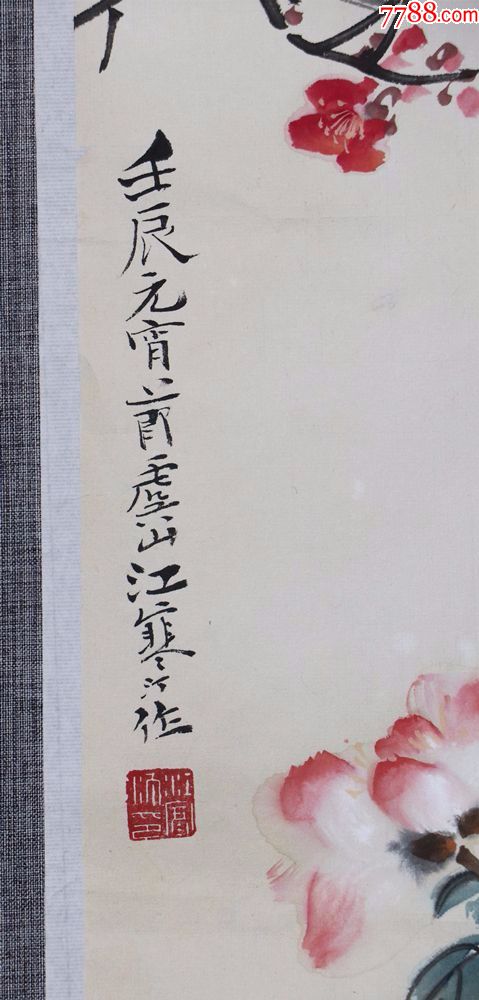 7788.com
壬辰元宵前虞山江寒汀作
江寒汀印